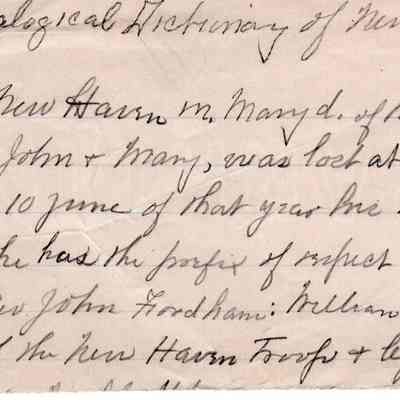 alogical Dictionary of New
New Haven m. Mary d. of
John & Mary, was lost at
10 June of that year his
he has the prefix of respect
John Fordham: William
the New Haven Troop &